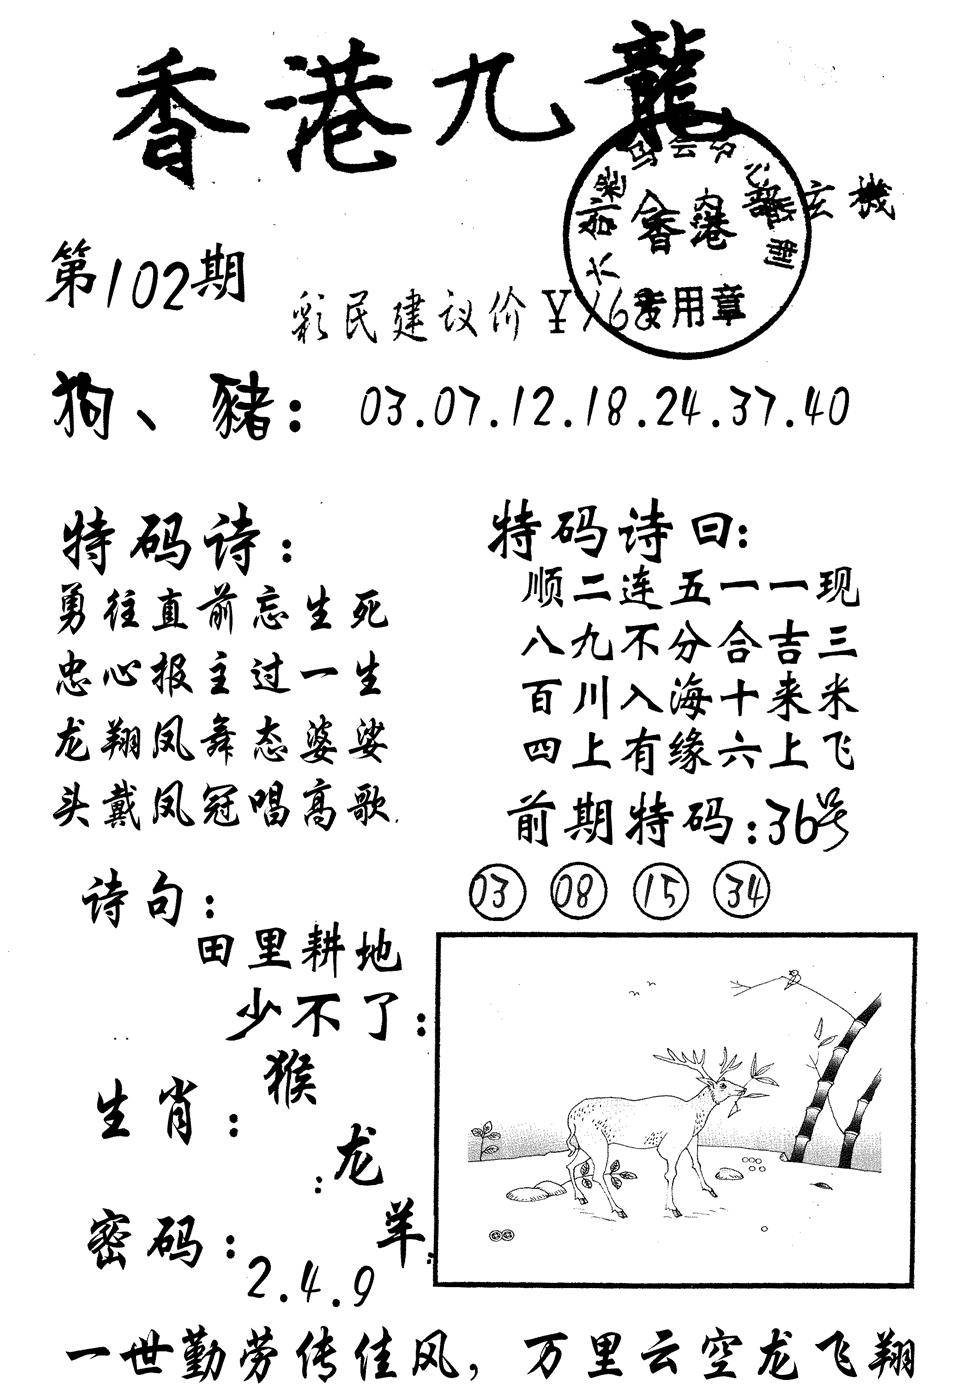 香港九龍
玄機
香港
专用章
第102期
彩民建议价¥168
狗、豬：03.07.12.18.24.37.40
特码诗：
勇往直前忘生死
忠心报主过一生
龙翔凤舞态婆娑
头戴凤冠唱高歌.
特码诗曰：
顺二连五一一现
八九不分合吉三
百川入海十来米
四上有缘六上飞
前期特码：36号
03 08 15 34
诗句：
田里耕地
少不了：
生肖：猴
：龙
羊：
密码：
2.4.9
一世勤劳传佳风，万里云空龙飞翔